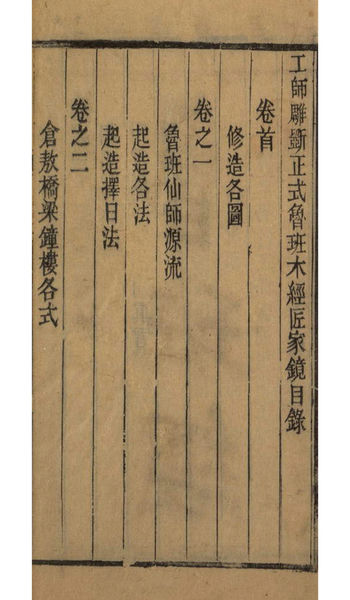 工師雕斲正式魯班木經匠家鏡目錄
卷首
修造各圖
卷之一
魯班仙師源流
起造各法
起造擇日法
卷之二
倉敖橋梁鐘樓各式